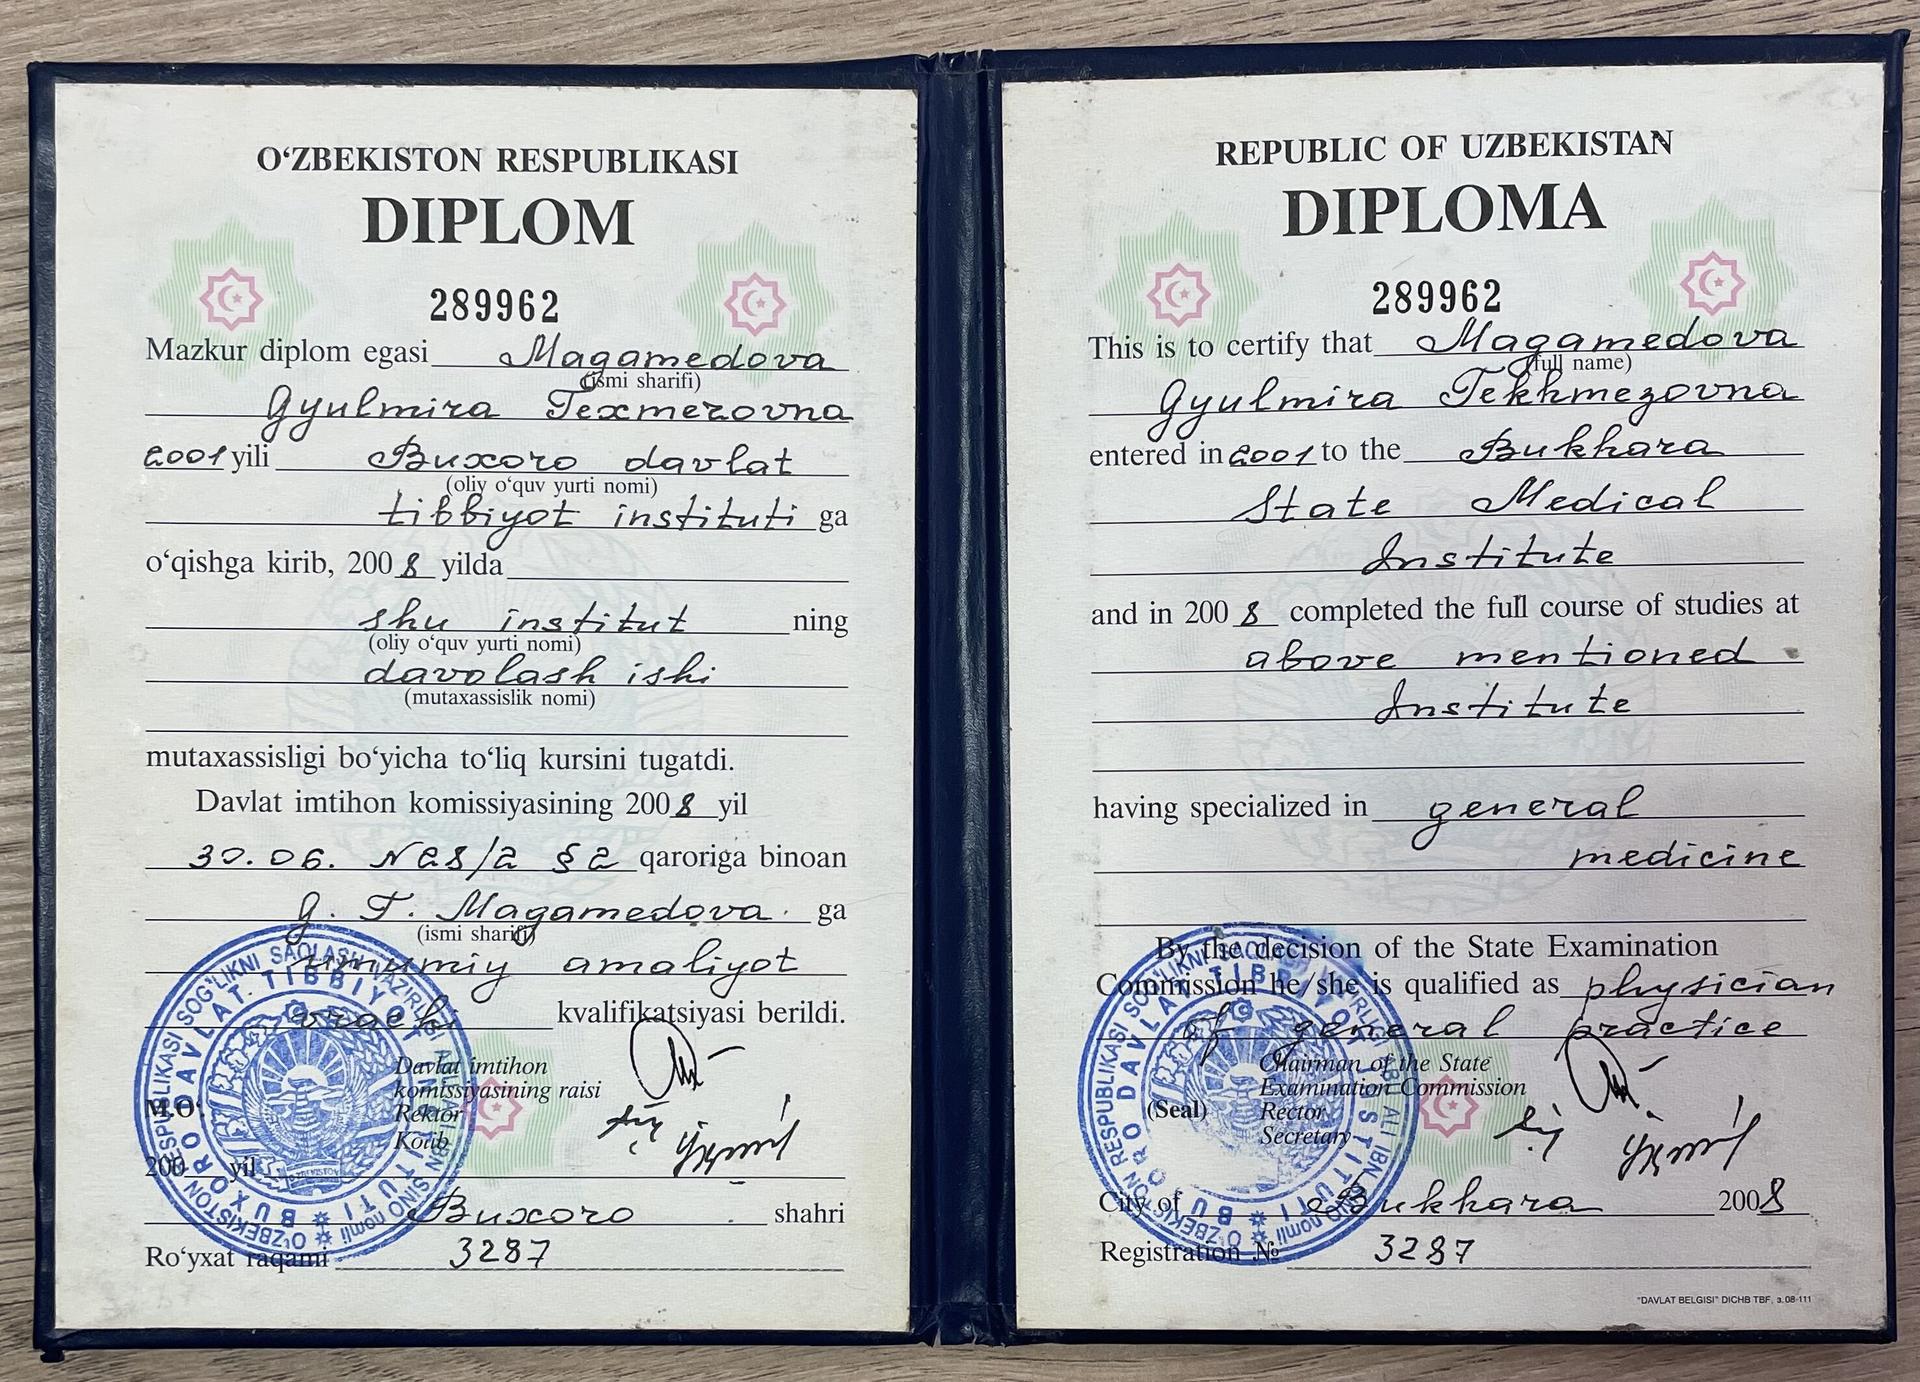 O‘ZBEKISTON RESPUBLIKASI
DIPLOM
289962
Mazkur diplom egasi Magamedova
(ismi sharifi)
Gyulmira Texmezovna
2001 yili Buxoro davlat
(oliy o‘quv yurti nomi)
tibbiyot instituti ga
o‘qishga kirib, 2008 yilda
shu institut ning
(oliy o‘quv yurti nomi)
davolash ishi
(mutaxassislik nomi)
mutaxassisligi bo‘yicha to‘liq kursini tugatdi.
Davlat imtihon komissiyasining 2008 yil
30.06. N28/2 §2 qaroriga binoan
G. T. Magamedova ga
(ismi sharifi)
umumiy amaliyot
vrachi kvalifikatsiyasi berildi.
Davlat imtihon
komissiyasining raisi
M.O‘. Rektor
Kotib
200 yil
Buxoro shahri
Ro‘yxat raqami 3287
REPUBLIC OF UZBEKISTAN
DIPLOMA
289962
This is to certify that Magamedova
(full name)
Gyulmira Tekhmezovna
entered in 2001 to the Bukhara
State Medical
Institute
and in 2008 completed the full course of studies at
above mentioned
Institute
having specialized in general
medicine
By the decision of the State Examination
Commission he/she is qualified as physician
of general practice
Chairman of the State
Examination Commission
(Seal) Rector
Secretary
City of Bukhara 2008
Registration № 3287
"DAVLAT BELGISI" DICHB TBF, з. 08-111